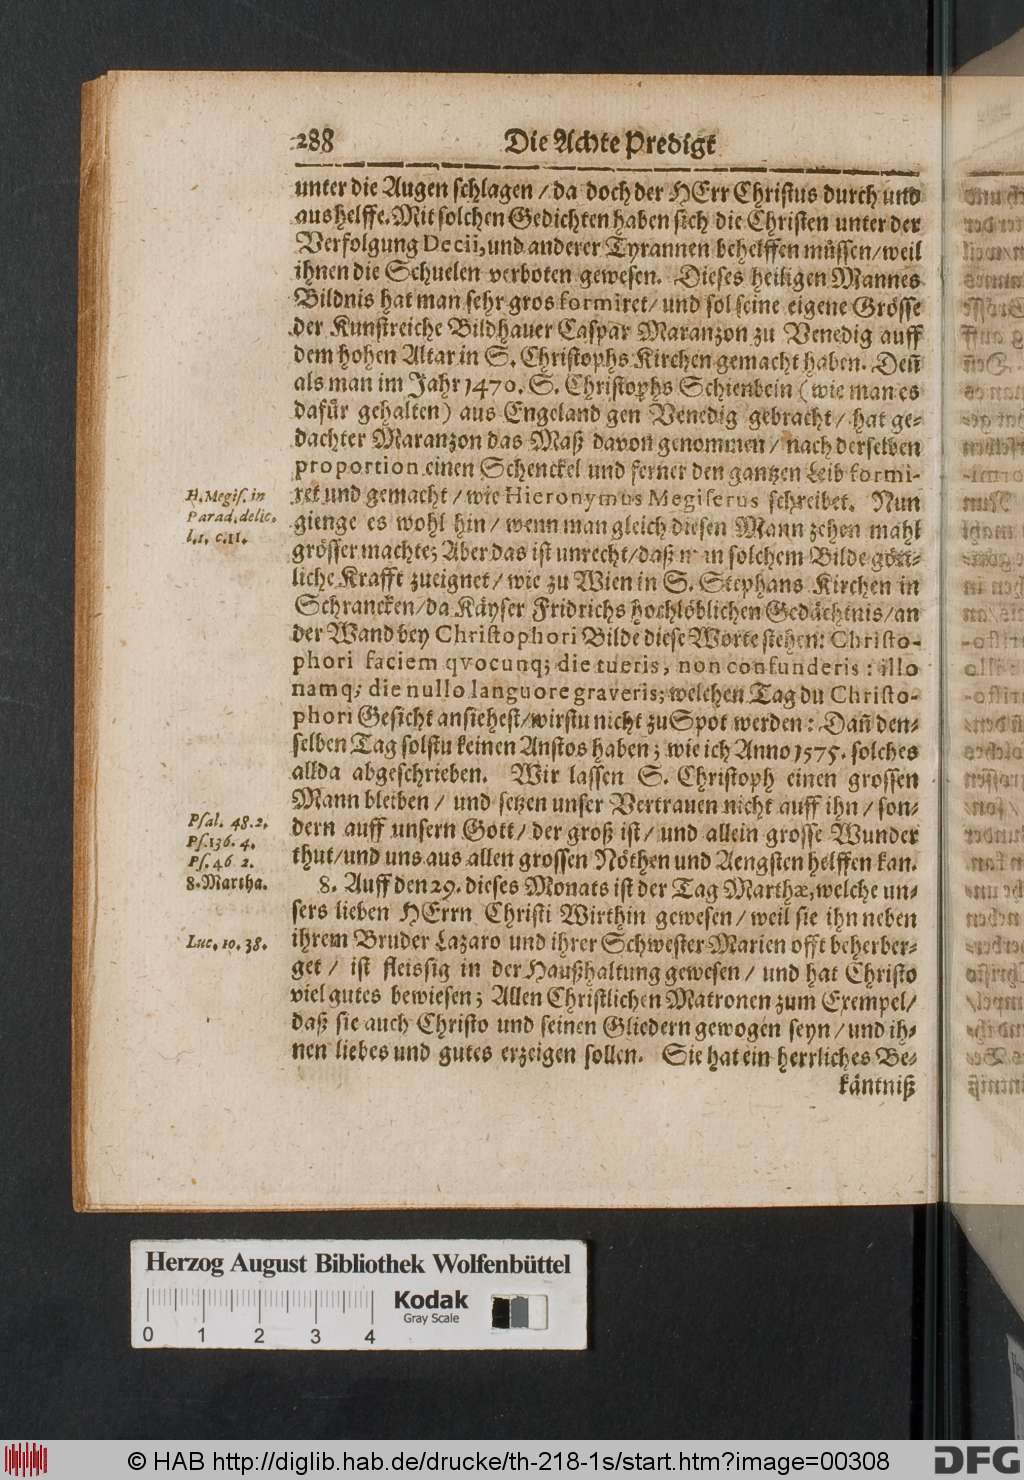 288 Die Achte Predigt
unter die Augen schlagen / da doch der HErr Christus durch und
aushelffe. Mit solchen Gedichten haben sich die Christen unter der
Verfolgung Decii, und anderer Tyrannen behelffen müssen / weil
ihnen die Schuelen verboten gewesen. Dieses heiligen Mannes
Bildnis hat man sehr gros formiret / und sol seine eigene Grösse
der Kunstreiche Bildhauer Caspar Maranzon zu Venedig auff
dem hohen Altar in S. Christophs Kirchen gemacht haben. Deñ
als man im Jahr 1470. S. Christophs Schienbein (wie man es
dafür gehalten) aus Engeland gen Venedig gebracht / hat ge-
dachter Maranzon das Maß davon genommen / nach derselben
proportion einen Schenckel und ferner den gantzen Leib formi-
H. Megis. in
Parad. delic.
l. 1. c. 11.
ret und gemacht / wie Hieronymus Megiserus schreibet. Nun
gienge es wohl hin / wenn man gleich diesen Mann zehen mahl
grösser machte; Aber das ist unrecht / daß man solchem Bilde gött-
liche Krafft zueignet / wie zu Wien in S. Stephans Kirchen in
Schrancken / da Käyser Fridrichs hochlöblichen Gedächtnis / an
der Wand bey Christophori Bilde diese Worte stehen: Christo-
phori faciem qvocunq; die tueris, non confunderis: illo
namq; die nullo languore graveris; welchen Tag du Christo-
phori Gesicht ansiehest / wirstu nicht zu Spot werden: Dañ den-
selben Tag solstu keinen Anstos haben; wie ich Anno 1575. solches
allda abgeschrieben. Wir lassen S. Christoph einen grossen
Mann bleiben / und setzen unser Vertrauen nicht auff ihn / son-
Psal. 48. 2.
Ps. 136. 4.
Ps. 46. 2.
dern auff unsern Gott / der groß ist / und allein grosse Wunder
thut / und uns aus allen grossen Nöthen und Aengsten helffen kan.
8. Martha.
8. Auff den 29. dieses Monats ist der Tag Marthæ, welche un-
sers lieben HErrn Christi Wirthin gewesen / weil sie ihn neben
Luc. 10. 38.
ihrem Bruder Lazaro und ihrer Schwester Marien offt beherber-
get / ist fleissig in der Haußhaltung gewesen / und hat Christo
viel gutes bewiesen; Allen Christlichen Matronen zum Exempel /
daß sie auch Christo und seinen Gliedern gewogen seyn / und ih-
nen liebes und gutes erzeigen sollen. Sie hat ein herrliches Be-
käntniß
Herzog August Bibliothek Wolfenbüttel
Kodak
Gray Scale
0 1 2 3 4
© HAB http://diglib.hab.de/drucke/th-218-1s/start.htm?image=00308
DFG